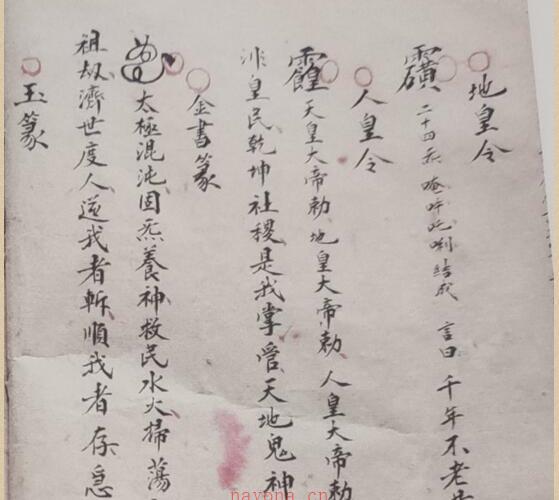 地皇令
二十四炁 唵吽吒唎結成 言曰 千年不老
人皇令
天皇大帝勅 地皇大帝勅 人皇大帝勅
皇民乾坤社稷是我掌管天地鬼神
金書篆
太極混沌固炁養神救民水火掃蕩
祖劫濟世度人逆我者斬順我者存急
玉篆
nayona.cn